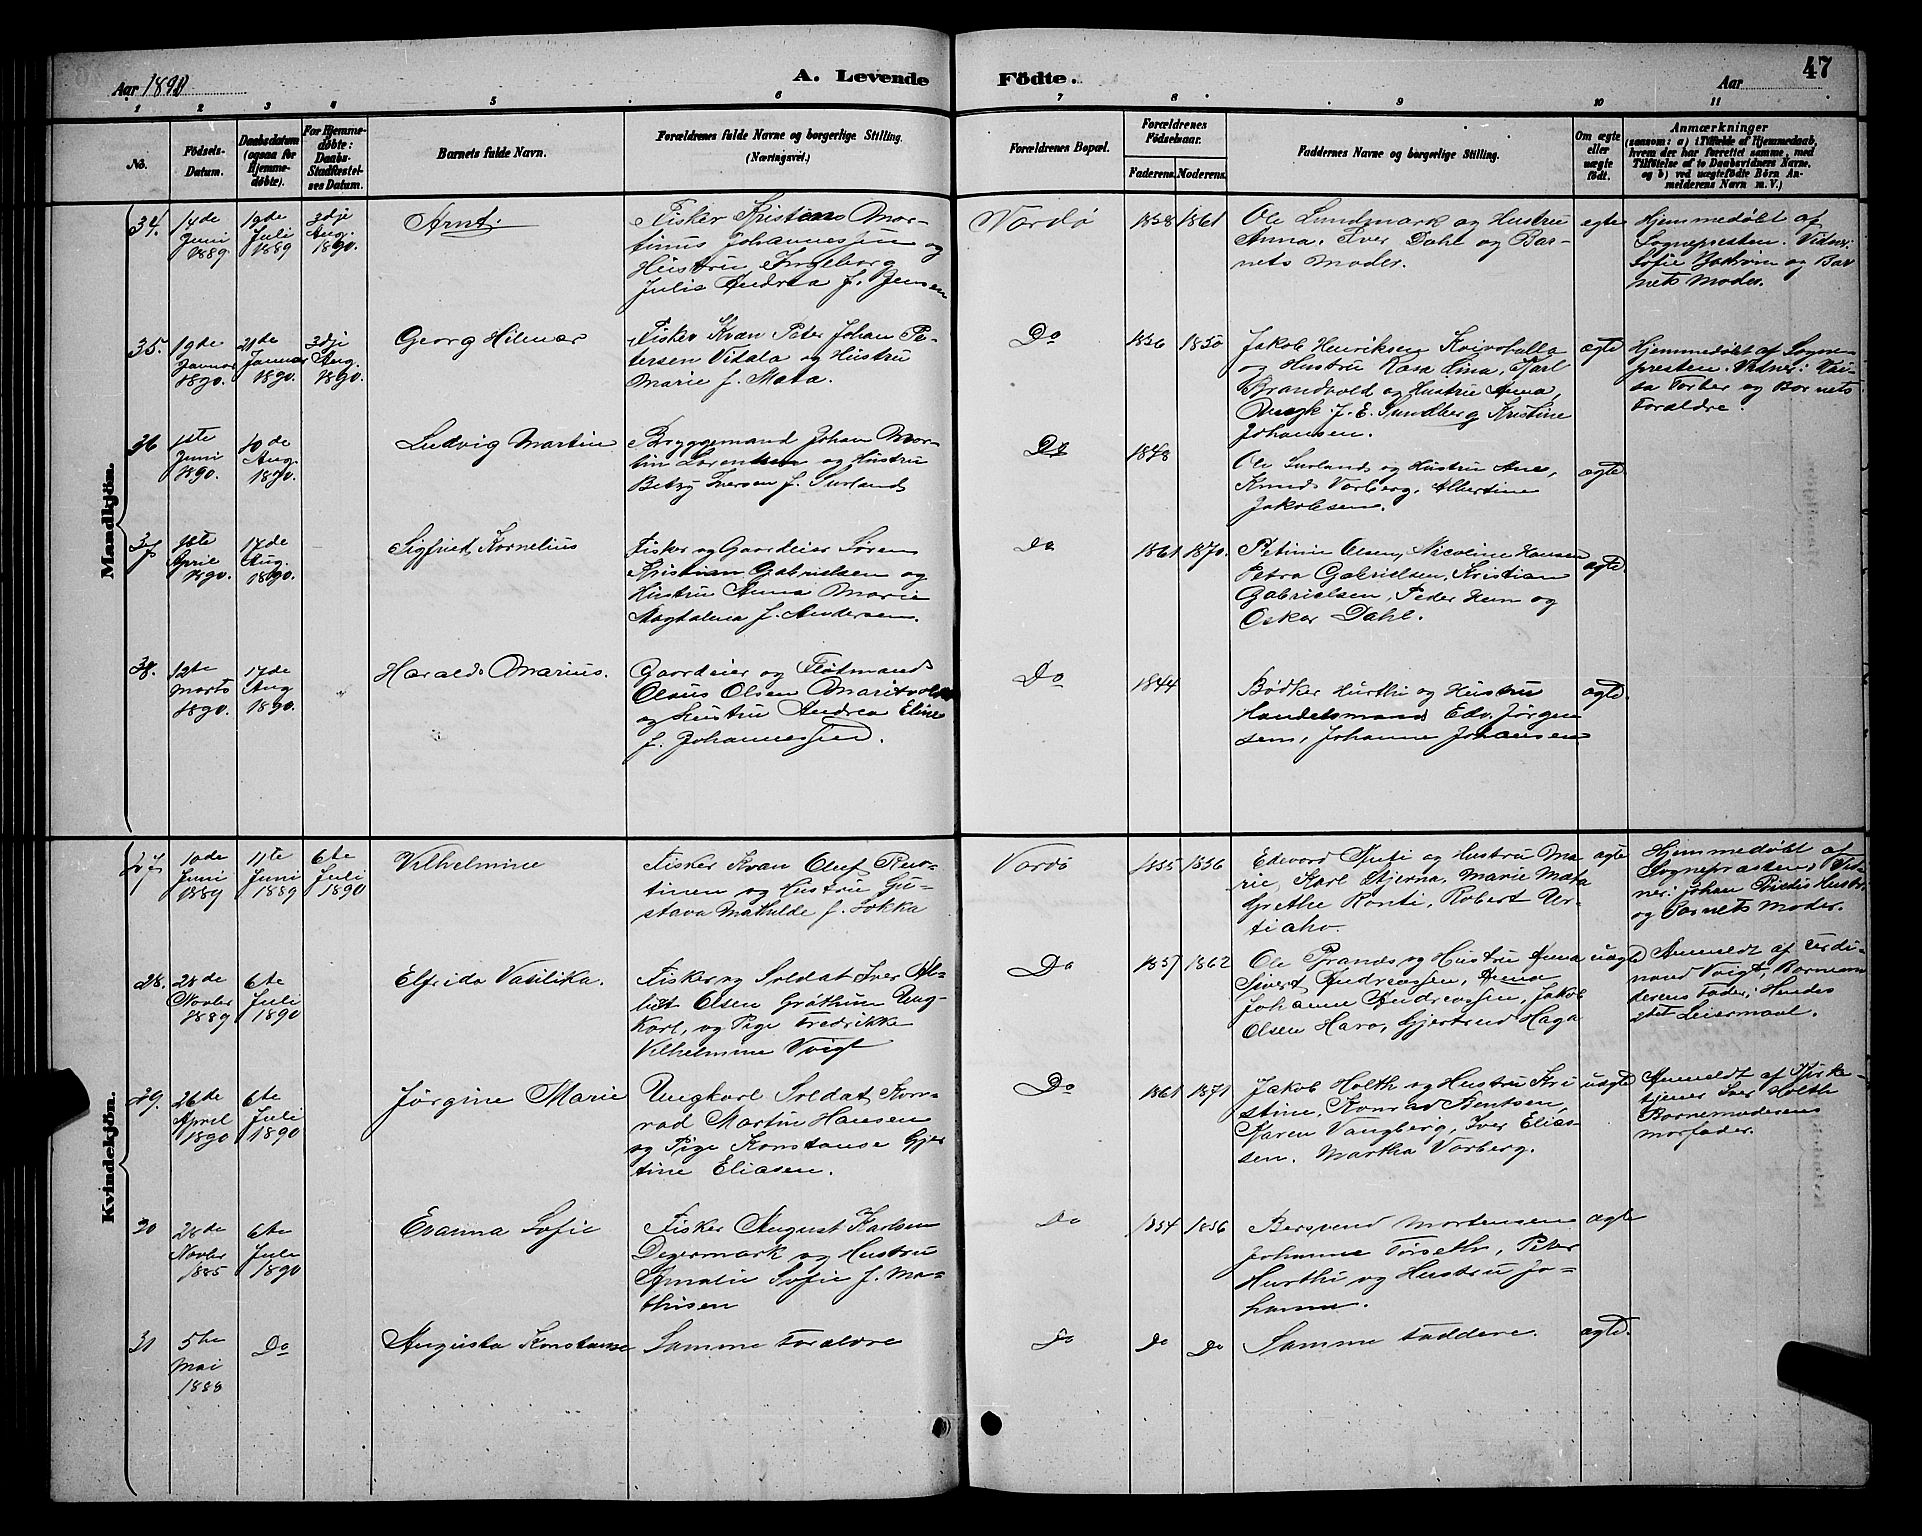 Aar 1890
A. Levende
Födte.
Aar
47
1 2 3 4 5 6 7 8 9 10 11
No.
Födsels-
Datum.
Daabsdatum
(ogsaa for
Hjemme-
döbte).
For Hjemme-
döbte:
Daabs-
Stadfæstel-
ses Datum.
Barnets fulde Navn.
Forældrenes fulde Navne og borgerlige Stilling.
(Næringsvei.)
Forældrenes Bopæl.
Forældrenes
Födselsaar.
Faderens. Moderens.
Faddernes Navne og borgerlige Stilling.
Om ægte
eller
uægte
födt.
Anmærkninger
(saasom: a) i Tilfælde af Hjemmedaab,
hvem der har forrettet samme, med
Tilföielse af to Daabsvidners Navne,
og b) ved uægtefödte Börn An-
melderens Navn m. V.)
Mandkjön.
34.
14de
Juni
1889.
19de
Juli
1889
3dje
Aug.
1890.
Arnt.
Fisker Kristians Mar-
tinus Johannessen og
Hustru Ingeborg
Julie Andrea f. Jensen
Vardø
1858
1861
Ole Lundmark og Hustru
Anna, Iver Dahl og Bar-
nets Moder.
egte
Hjemmedøbt af
Sognepresten. Vidner:
Sofie og Bar
nets Moder.
35.
19de
Januar
1890.
21de
Januar
1890.
3dje
Aug.
1890.
Georg Hilmar
Fisker Kvæn Peter Johan Pe-
tersen Vitala og Hustru
Marie f. Mata.
Do
1856
1850
Jakob Henriksen
og Hustru Kasa Lina, Karl
Brandvold og Hustru Anna,
J. E. Sundberg Kristine
Johansen.
ægte
Hjemmedøbt af Sogne-
presten. Vidner:
og Barnets
Forældre.
36
1ste
Juni
1890.
10de
Aug.
1890.
Ludvig Martin
Bryggemand Johan Mar-
tin Lorentsen og Hustru
Betzy Iversen f. Surland
Do
1848
Ole Surland og Hustru Ane,
Knud Varberg, Albertine
Jakobsen.
ægte
37
16te
April
1890.
17de
Aug.
1890.
Sigfried Kornelius
Fisker og Gaardeier Søren
Kristian Gabrielsen og
Hustru Anna Marie
Magdalena f. Andersen.
Do
1861
1870.
Petinie Olsen, Nicoline Hansen
Petra Gabrielsen, Kristian
Gabrielsen, Peder Hem og
Oskar Dahl.
ægte.
38.
12te
Marts
1890.
17de
Aug
1890.
Harald Marius.
Gaardeier og Fløtmand
Olaus Olsen
og Hustru Andrea Eline
f. Johannessen.
Do
1844
Bødker Hurthi og Hustru
Handelsmand Edv. Jørgen
sen, Johanne Johansen
ægte.
Kvindekjön.
27
10de
Juni
1889
11te
Juni
1889
6te
Juli
1890
Vilhelmine
Fisker Kvæn Oluf
tinen og Hustru Gu-
stava Mathilde f. Lokka
Vardø
1855
1856
Edevard og Hustru Ma-
rie, Karl Stjerna, Marie Mata
Grethe Ronti, Robert Ur-
tiaho.
ægte
Hjemmedøbt af
Sognepresten, Vid-
ner: Johan Hustru
og Barnets Moder.
28.
28de
Novbr
1889
6te
Juli
1890
Elfrida Vasilika.
Fisker og Soldat Iver Al-
bert Olsen Grøthum Ung-
karl, og Pige Fredrikke
Vilhelmine Voigt
Do
1857
1862
Ole Prands og Hustru Anna
Sivert Andreassen, Anna
Johanne Andreassen, Jakob
Olsen Haro, Gjertrud Haga
uægte
Anmeldt af Ferdi-
nand Voigt, Barnemo
derens Fader; Hendes
2det Leiermaal.
29.
26de
April
1890
6te
Juli
1890
Jørgine Marie
Ungkarl Soldat Kon-
rad Martin Hansen
og Pige Konstanse Gjer
tine Eliasen.
Do
1861
1871
Jakob Holth og Hustru Kri
stine, Konrad Bentsen,
Karen Vangberg, Iver Elias-
sen. Martha Varberg.
uægte
Anmeldt af Kirke-
tjener Iver Holth
Barnemoderens
morfader.
30
28de
Novbr
1885
6te
Juli
1890
Eranna Sofie
Fisker August Karlsen
Degermark og Hustru
Amalie Sofie f. Ma-
thisen
Do
1854
1856
Bersvend Mortensen
Johanne Forseth, Peter
Hurthi og Hustru Jo-
hanna.
ægte
31
5te
Mai
1888
Do
Augusta Konstanse
Samme Forældre
Do
Do
Do
Samme Faddere.
ægte.